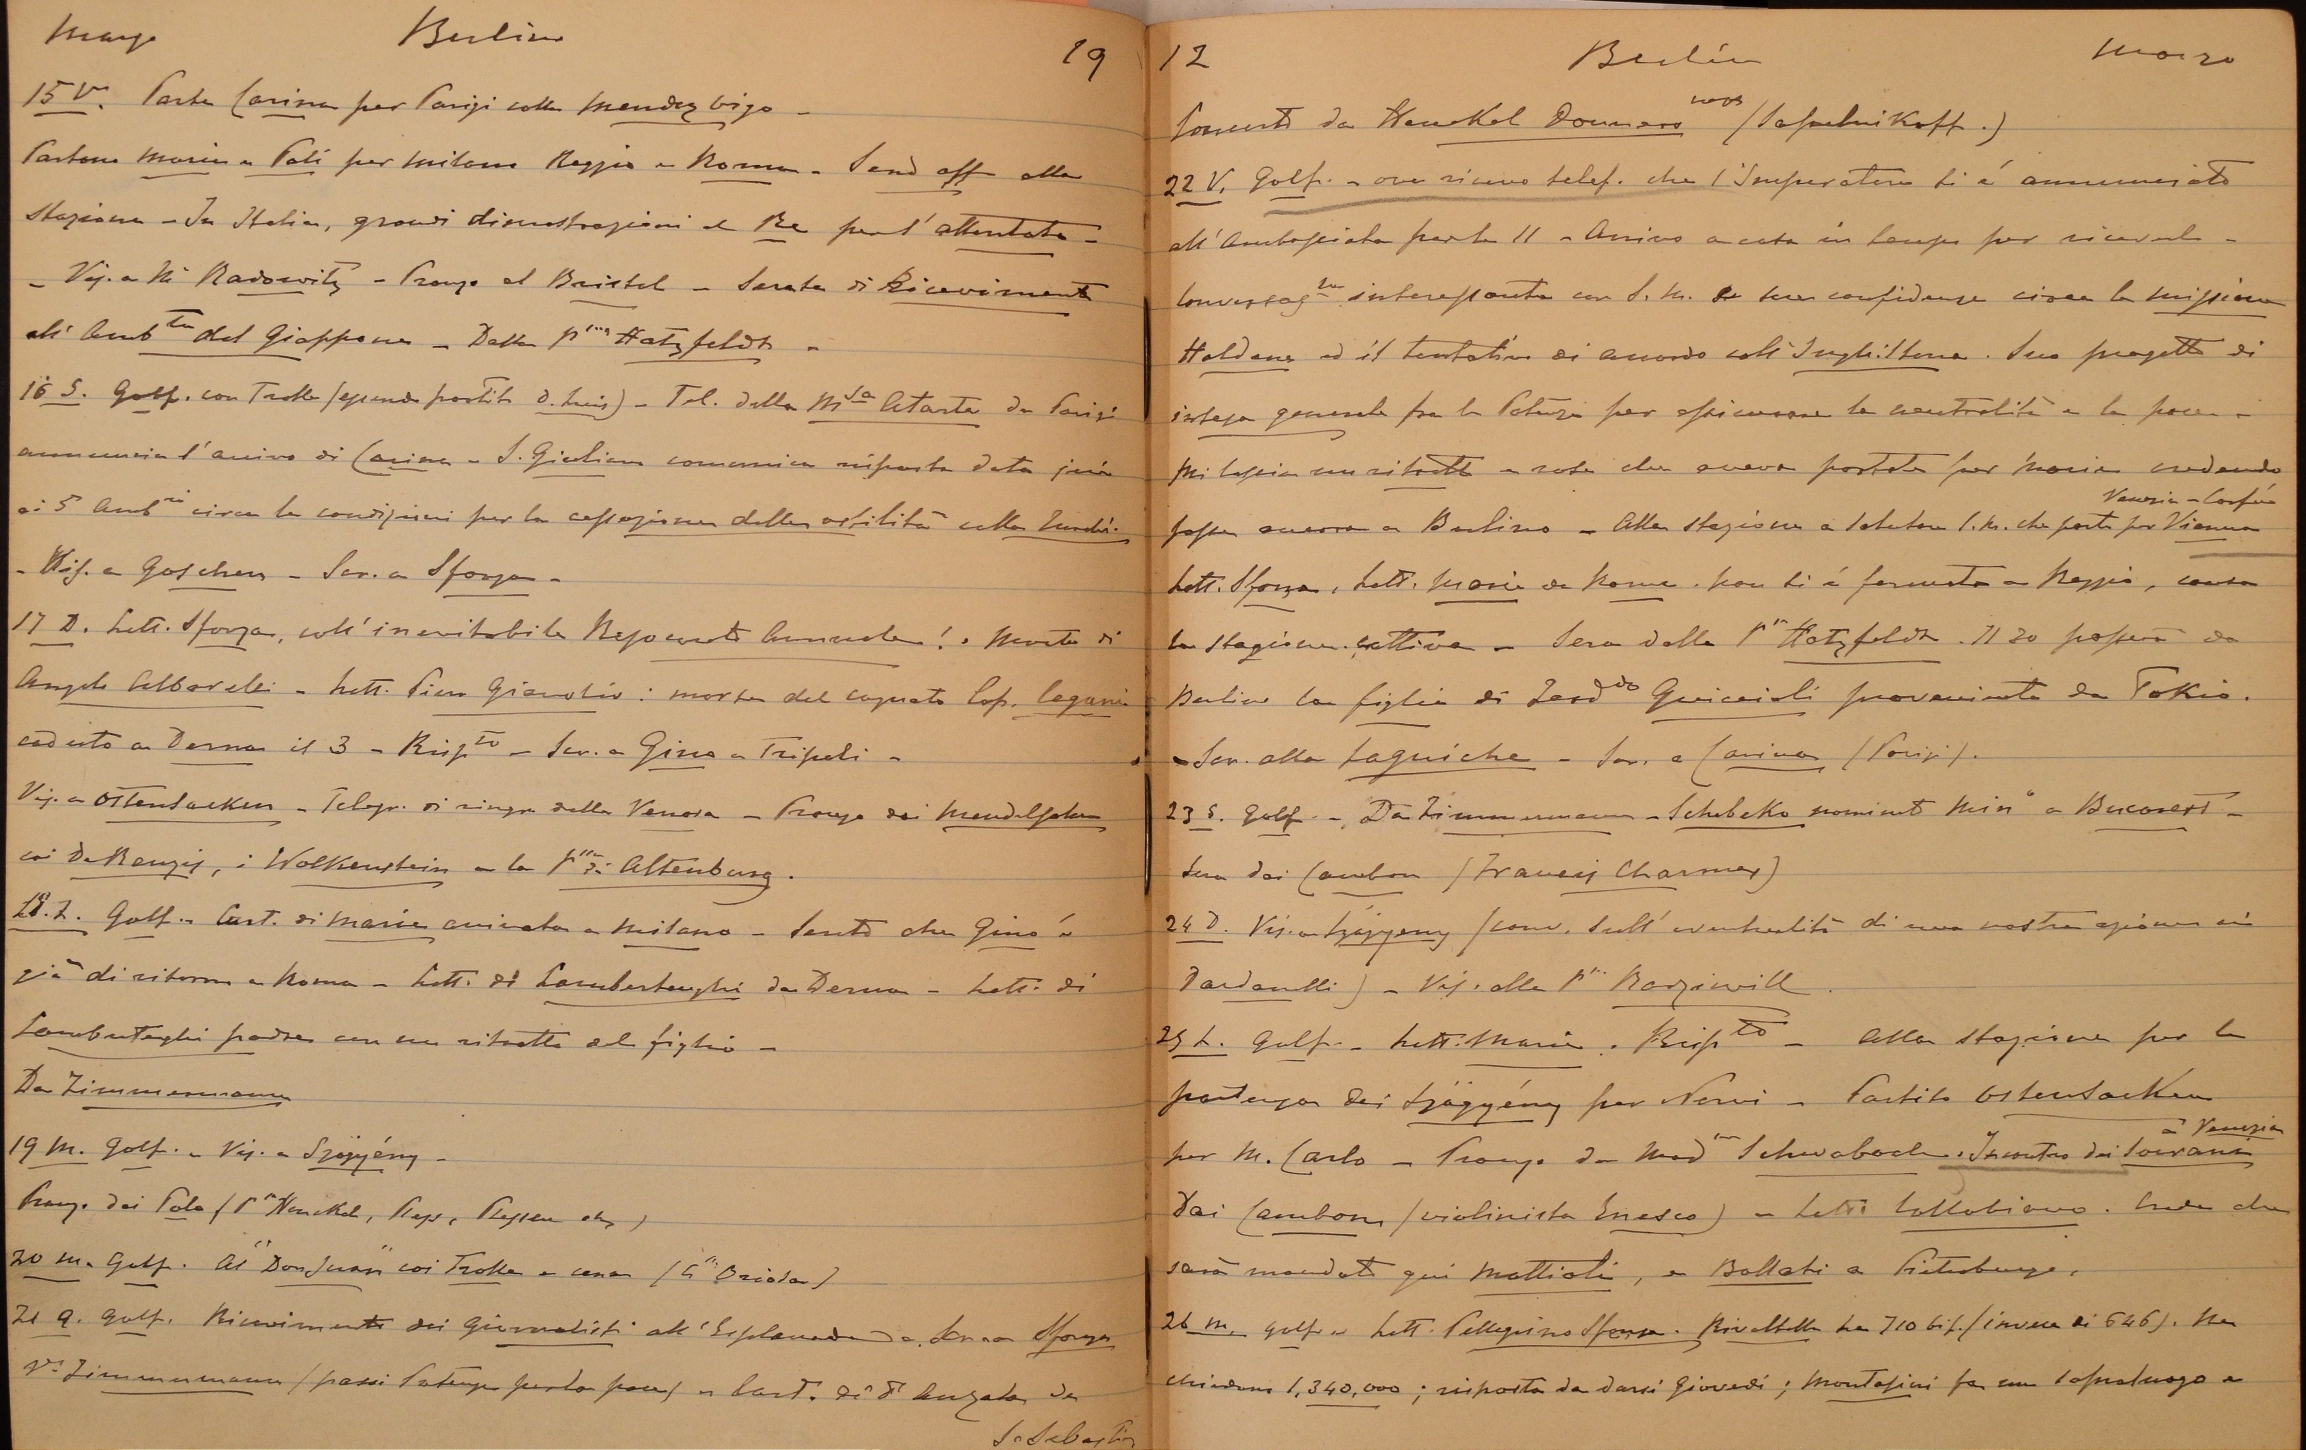 Marzo Berlino 19
15 V. Parte Carina per Parigi colla Mendez Vigo -
Partono Maria e Poli per Milano Reggio e Roma - alla
stazione - In Italia, grandi dimostrazioni al Re per l'attentato -
- Vis. a Mi Radowitz - Pranzo al Bristol - Serata di Ricevimento
all' Amb.ta del Giappone - Dalla P.ssa Hatzfeldt -
16 S. Golf. con Trolle (essendo partito d. Luis) - Tel. della M.sa Alta da Parigi
annuncia l'arrivo di Carina - S. Giuliano comunica risposta data jeri
ai 5 Amb.ri circa le condizioni per la cessazione delle ostilità colla Turchia.
- Vis. a Goschen - Scr. a Sforza -
17 D. Lett. Sforza, coll' inevitabile Resoconto Annuale! - Morte di
Angelo Albarelli - Lett. Piero Gianolio : morte del cognato Cap.
caduto a Derna il 3 - Risp.to - Scr. a Gino a Tripoli -
Vis. a Ostensacken - Telegr. di ringr. della Venosa - Pranzo dai Mendelssohn
coi De Renzis, i Wolkenstein e la P.ssa di Altenburg.
18. L. Golf - Cart. di Maria arrivata a Milano - Sento che Gino è
già di ritorno a Roma - Lett. di Lambertenghi da Derna - Lett. di
Lambertenghi padre con un ritratto del figlio -
Da Zimmermann
19 M. Golf. - Vis. a Szögyény -
Pranzo dai Polo (P. Henckel, Pless, Plessen etc)
20 M. Golf. Al "Don Juan" coi Trolle e cena (C.ssa Oriola)
21 G. Golf. Ricevimento dei Giornalisti all' Esplanade - Scr. a Sforza
V. Zimmermann (passi Potenze per la pace) - Cart. di d'Aunzata da
S. Sebastian
12 Berlin Marzo
Concerto da Henckel Donners marck (Sapelnikoff.)
22 V. Golf. - ove ricevo telef. che l'Imperatore si è annunciato
all' Ambasciata per le 11 - Arrivo a casa in tempo per riceverlo -
Conversaz.ne interessante con S. M. e sue confidenze circa la missione
Haldane ed il tentativo di accordo coll' Inghilterra. Suo progetto di
intesa generale fra le Potenze per assicurare la neutralità e la pace -
Mi lascia un ritratto e rose che aveva portate per Maria credendo
Venezia - Corfù
fosse ancora a Berlino - Alla stazione a salutare S. M. che parte per Vienna
Lett. Sforza, Lett. Maria da Roma. Non si è fermata a Reggio, causa
la stagione cattiva - Sera dalla P.ssa Hatzfeldt. Il 20 passerà da
Berlino la figlia di Ferd.do Guiccioli proveniente da Tokio.
- Scr. alla Laguiche - Scr. a Carina (Parigi).
23 S. Golf - Da Zimmermann - Schebeko nominato Min.o a Bucarest -
Sera dai Cambon (Francis Charmes)
24 D. Vis. a Szögyeny (conv. sull' eventualità di una nostra azione ai
Dardanelli) - Vis. alla P.ssa Radziwill.
25 L. Golf - Lett. Maria. Risp.to - Alla stazione per la
partenza dei Szögyény per Nervi - Partito Ostensacken
a Venezia
per M. Carlo - Pranzo da Mad.me Schwabach. Incontro dei Sovrani
Dai Cambon (violinista Enesco) - Lett. Collobiano. Crede che
sarà mandato qui Mattioli, e Bollati a Pietroburgo.
26 M. Golf - Lett. Pellegrino Sforza. Rivaltella ha 710 bif. (invece di 646). Ne
chiedono 1,340,000 ; risposta da darsi Giovedì ; Montasini fa un sopraluogo e